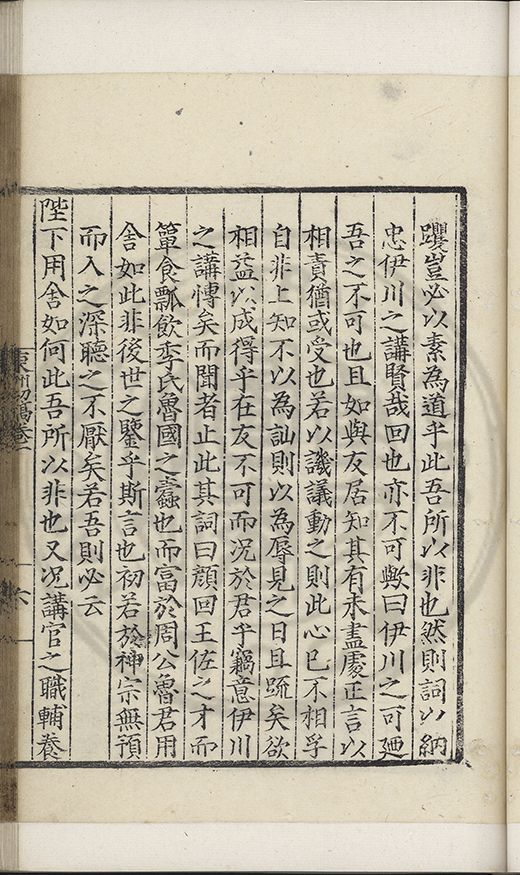 躩豈必以素為道乎此吾所以非也然則詞以納
忠伊川之講賢哉回也亦不可歟曰伊川之可廼
吾之不可也且如與友居知其有未盡處正言以
相責猶或受也若以譏議動之則此心已不相孚
自非上知不以為訕則以為辱見之日且疏矣欲
相益以成得乎在友不可而况於君乎竊意伊川
之講慱矣而聞者止此其詞曰顔回王佐之才而
簞食瓢飲季氏魯國之蠧也而富於周公魯君用
舍如此非後世之鑒乎斯言也初若於神宗無預
而入之深聽之不厭矣若吾則必云
陛下用舍如何此吾所以非也又况講官之職輔養
東洲初稿卷一
六